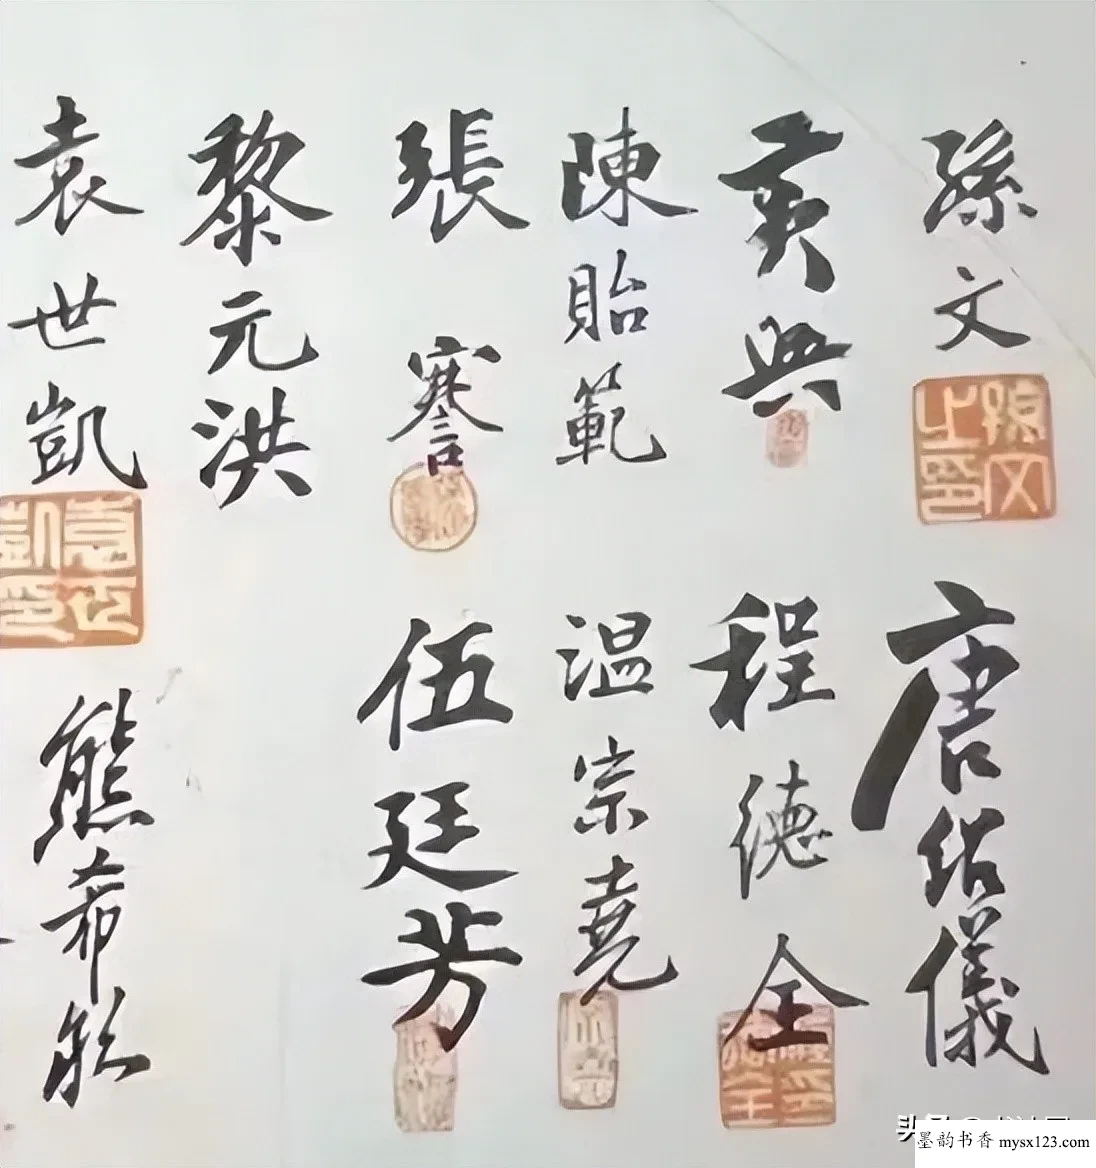 孫文
唐紹儀
黃興
程德全
陳貽範
温宗堯
張謇
伍廷芳
黎元洪
袁世凱
熊希齡
孫文之印
袁世凱印
墨韵书香 mysx123.com